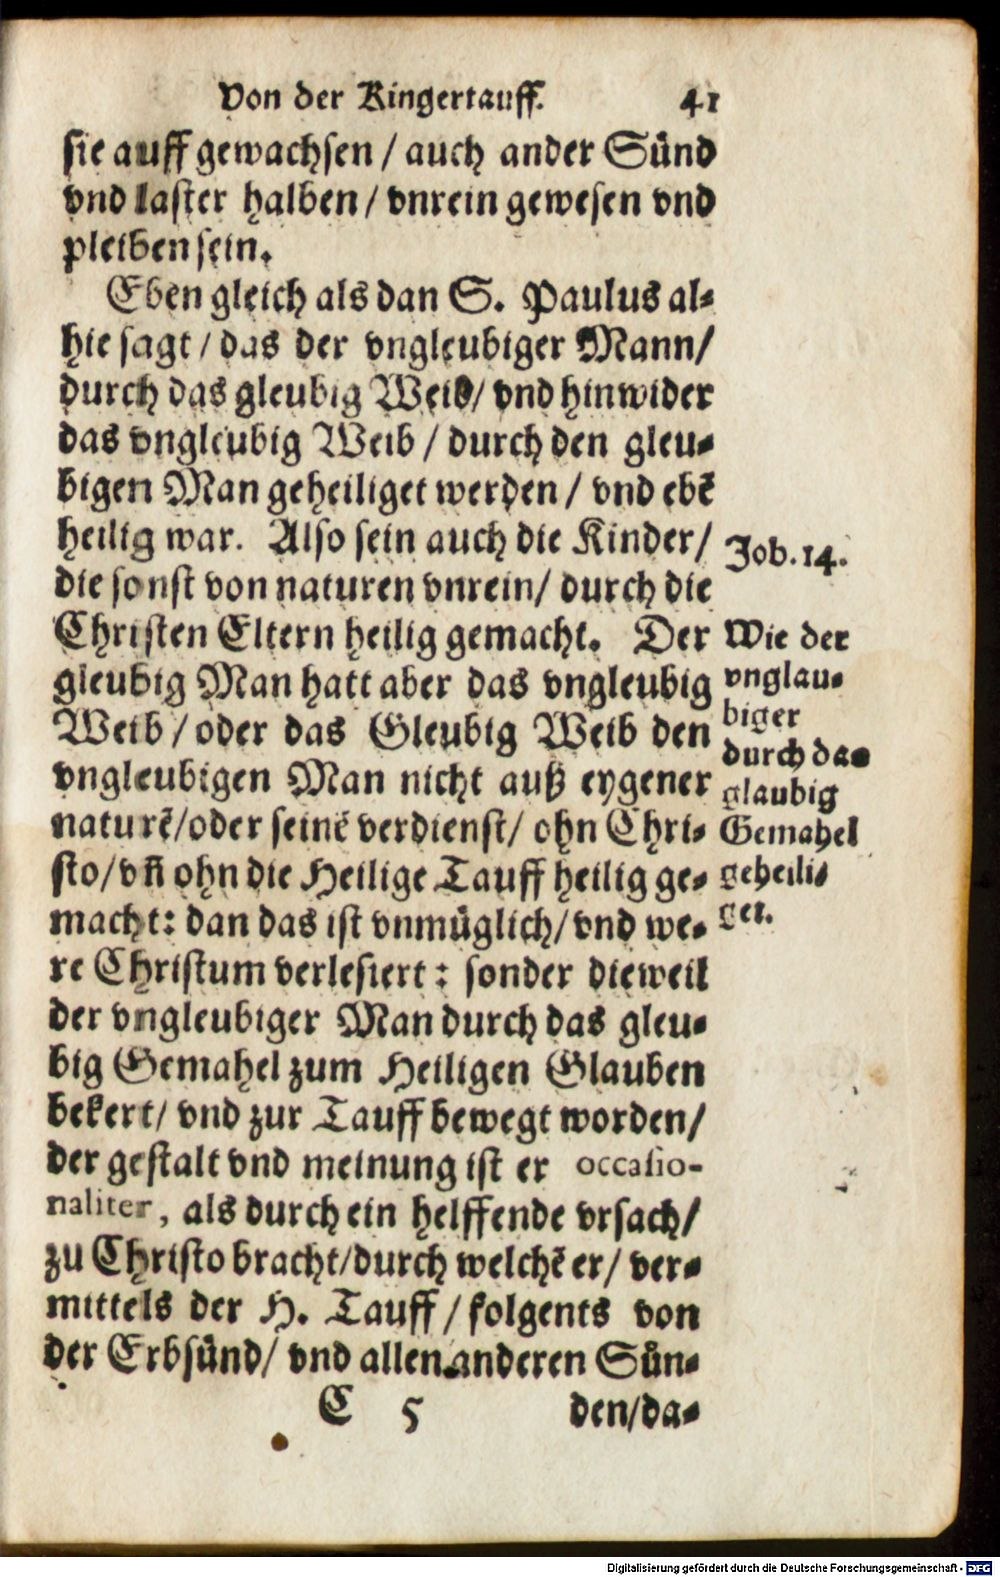 Von der Kingertauff. 41
sie auff gewachsen / auch ander Sünd
vnd laster halben / vnrein gewesen vnd
pleiben sein.
Eben gleich als dan S. Paulus al-
hie sagt / das der vngleubiger Mann/
durch das gleubig Weib/ vnd hinwider
das vngleubig Weib / durch den gleu-
bigen Man geheiliget werden / vnd ebē
heilig war. Also sein auch die Kinder/
die sonst von naturen vnrein/ durch die
Christen Eltern heilig gemacht. Der
gleubig Man hatt aber das vngleubig
Weib / oder das Gleubig Weib den
vngleubigen Man nicht auß eygener
naturē/oder seinē verdienst/ ohn Chri-
sto/vñ ohn die Heilige Tauff heilig ge-
macht: dan das ist vnmüglich/ vnd we-
re Christum verlesiert: sonder dieweil
der vngleubiger Man durch das gleu-
big Gemahel zum Heiligen Glauben
bekert/ vnd zur Tauff bewegt worden/
der gestalt vnd meinung ist er occasio-
naliter, als durch ein helffende vrsach/
zu Christo bracht/durch welchē er/ ver-
mittels der H. Tauff / folgents von
der Erbsünd/ vnd allen anderen Sün-
C 5 den/da-
Job. 14.
Wie der
vnglau-
biger
durch das
glaubig
Gemahel
geheili-
get.
Digitalisierung gefördert durch die Deutsche Forschungsgemeinschaft - DFG